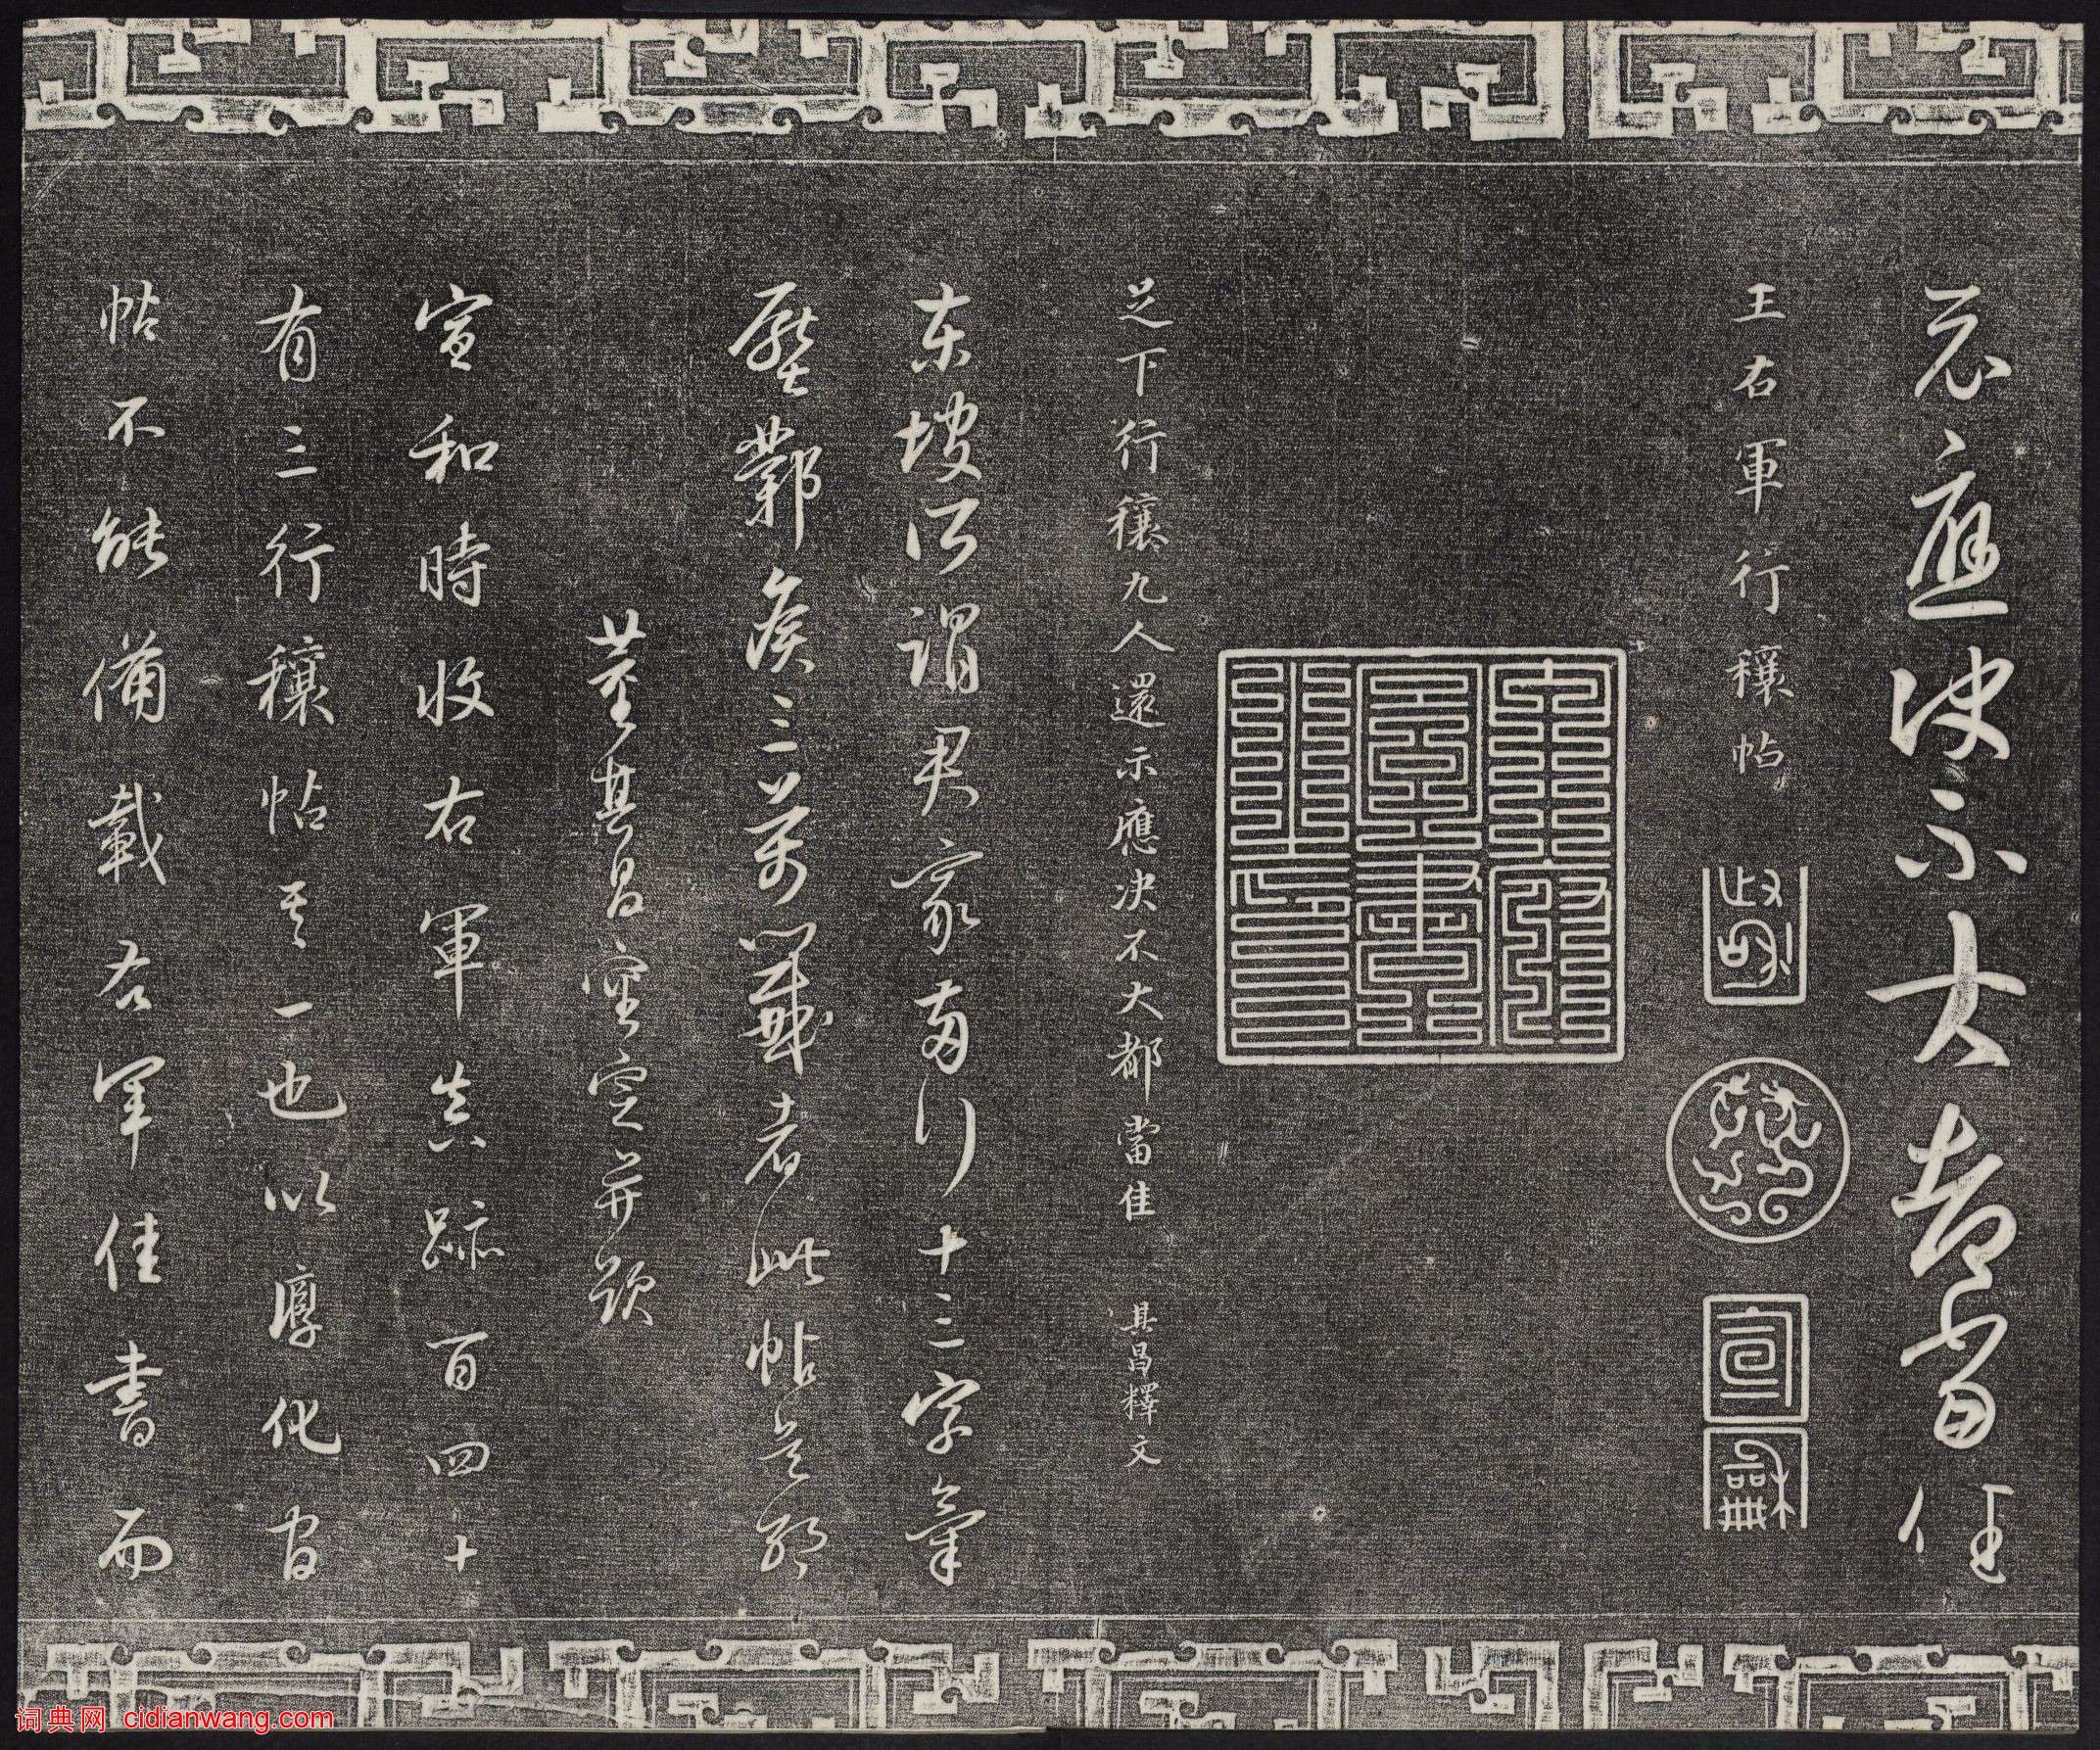 示應決不大都當佳
王右軍行穰帖
政和
宣
龢
足下行穰九人還示應決不大都當佳 其昌釋文
東坡所謂君家兩行十三字氣
壓鄴侯三萬籤者此帖是耶
董其昌審定并題
宣和時收右軍真跡百四十
有三行穰帖其一也以淳化官
帖不能備載右軍佳書而
词典网 cidianwang.com